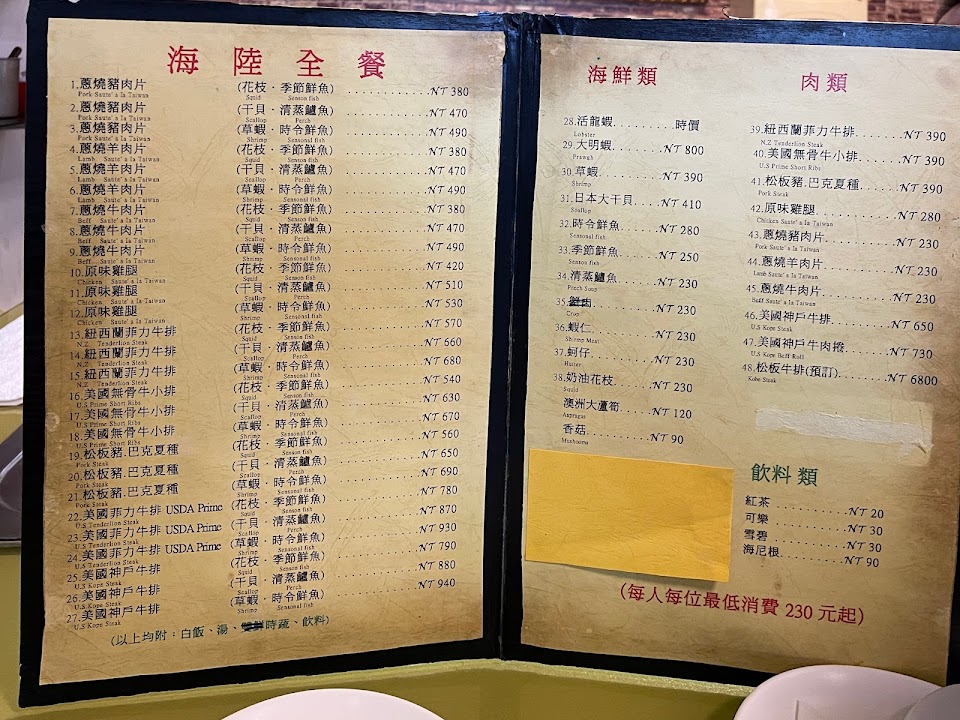 海陸全餐
1.蔥燒豬肉片 (花枝．季節鮮魚) ............ NT 380
Pork Saute' a la Taiwan Squid Senson fish
2.蔥燒豬肉片 (干貝．清蒸鱸魚) ............ NT 470
Pork Saute' a la Taiwan Scallop Perch
3.蔥燒豬肉片 (草蝦．時令鮮魚) ............ NT 490
Pork Saute' a la Taiwan Shrimp Sensonal fish
4.蔥燒羊肉片 (花枝．季節鮮魚) ............ NT 380
Lamb Saute' a la Taiwan Squid Senson fish
5.蔥燒羊肉片 (干貝．清蒸鱸魚) ............ NT 470
Lamb Saute' a la Taiwan Scallop Perch
6.蔥燒羊肉片 (草蝦．時令鮮魚) ............ NT 490
Lamb Saute' a la Taiwan Shrimp Sensonal fish
7.蔥燒牛肉片 (花枝．季節鮮魚) ............ NT 380
Beff Saute' a la Taiwan Squid Senson fish
8.蔥燒牛肉片 (干貝．清蒸鱸魚) ............ NT 470
Beff Saute' a la Taiwan Scallop Perch
9.蔥燒牛肉片 (草蝦．時令鮮魚) ............ NT 490
Beff Saute' a la Taiwan Shrimp Sensonal fish
10.原味雞腿 (花枝．季節鮮魚) ............ NT 420
Chicken Saute' a la Taiwan Squid Senson fish
11.原味雞腿 (干貝．清蒸鱸魚) ............ NT 510
Chicken Saute' a la Taiwan Scallop Perch
12.原味雞腿 (草蝦．時令鮮魚) ............ NT 530
Chicken Saute' a la Taiwan Shrimp Sensonal fish
13.紐西蘭菲力牛排 (花枝．季節鮮魚) ............ NT 570
N.Z. Tenderlion Steak Squid Senson fish
14.紐西蘭菲力牛排 (干貝．清蒸鱸魚) ............ NT 660
N.Z. Tenderlion Steak Scallop Perch
15.紐西蘭菲力牛排 (草蝦．時令鮮魚) ............ NT 680
N.Z. Tenderlion Steak Shrimp Sensonal fish
16.美國無骨牛小排 (花枝．季節鮮魚) ............ NT 540
U.S Prime Short Ribs Squid Senson fish
17.美國無骨牛小排 (干貝．清蒸鱸魚) ............ NT 630
U.S Prime Short Ribs Scallop Perch
18.美國無骨牛小排 (草蝦．時令鮮魚) ............ NT 670
U.S Prime Short Ribs Shrimp Sensonal fish
19.松板豬.巴克夏種 (花枝．季節鮮魚) ............ NT 560
Pork Steak Squid Senson fish
20.松板豬.巴克夏種 (干貝．清蒸鱸魚) ............ NT 650
Pork Steak Scallop Perch
21.松板豬.巴克夏種 (草蝦．時令鮮魚) ............ NT 690
Pork Steak Shrimp Sensonal fish
22.美國菲力牛排 USDA Prime (花枝．季節鮮魚) ............ NT 780
U.S Tenderlion Steak Squid Senson fish
23.美國菲力牛排 USDA Prime (干貝．清蒸鱸魚) ............ NT 870
U.S Tenderlion Steak Scallop Perch
24.美國菲力牛排 USDA Prime (草蝦．時令鮮魚) ............ NT 930
U.S Tenderlion Steak Shrimp Sensonal fish
25.美國神戶牛排 (花枝．季節鮮魚) ............ NT 790
U.S Kope Steak Squid Senson fish
26.美國神戶牛排 (干貝．清蒸鱸魚) ............ NT 880
U.S Kope Steak Scallop Perch
27.美國神戶牛排 (草蝦．時令鮮魚) ............ NT 940
U.S Kope Steak Shrimp Sensonal fish
(以上均附：白飯、湯、時蔬、飲料)
海鮮類
28.活龍蝦.........時價
Lobster
29.大明蝦......NT 800
Prawgh
30.草蝦.........NT 390
Shrimp
31.日本大干貝....NT 410
Scallop
32.時令鮮魚......NT 280
Sensonal fish
33.季節鮮魚......NT 250
Senson fish
34.清蒸鱸魚......NT 230
Perch Soup
35. .........NT 230
Crop
36.蝦仁.........NT 230
Shrimp Meat
37.蚵仔.........NT 230
Huiter
38.奶油花枝......NT 230
Squid
澳洲大蘆筍....NT 120
Aspragas
香菇.........NT 90
Mushooms
肉類
39.紐西蘭菲力牛排......NT 390
N.Z Tenderlion Steak
40.美國無骨牛小排......NT 390
U.S Prime Short Ribs
41.松板豬.巴克夏種.....NT 390
Pork Steak
42.原味雞腿...........NT 280
Chicken Saute' a la Taiwan
43.蔥燒豬肉片.........NT 230
Pork Saute' a la Taiwan
44.蔥燒羊肉片.........NT 230
Lamb Saute' a la Taiwan
45.蔥燒牛肉片.........NT 230
Beff Saute' a la Taiwan
46.美國神戶牛排.......NT 650
U.S Kope Steak
47.美國神戶牛肉捲.....NT 730
U.S Kope Beff Roll
48.松板牛排(預訂).....NT 6800
Kobe Steak
飲料類
紅茶............NT 20
可樂............NT 30
雪碧............NT 30
海尼根..........NT 90
(每人每位最低消費 230 元起)